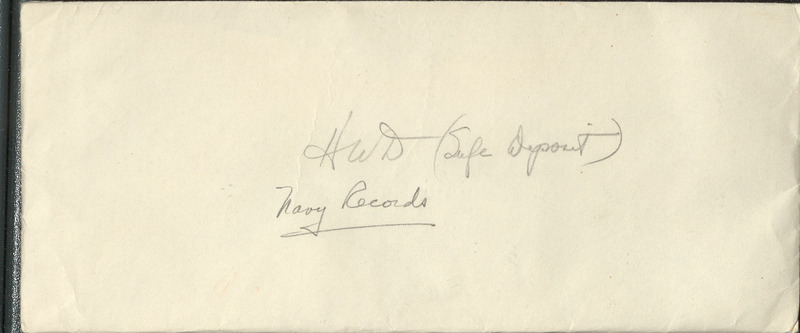 HWD (Safe Deposit)
Navy Records